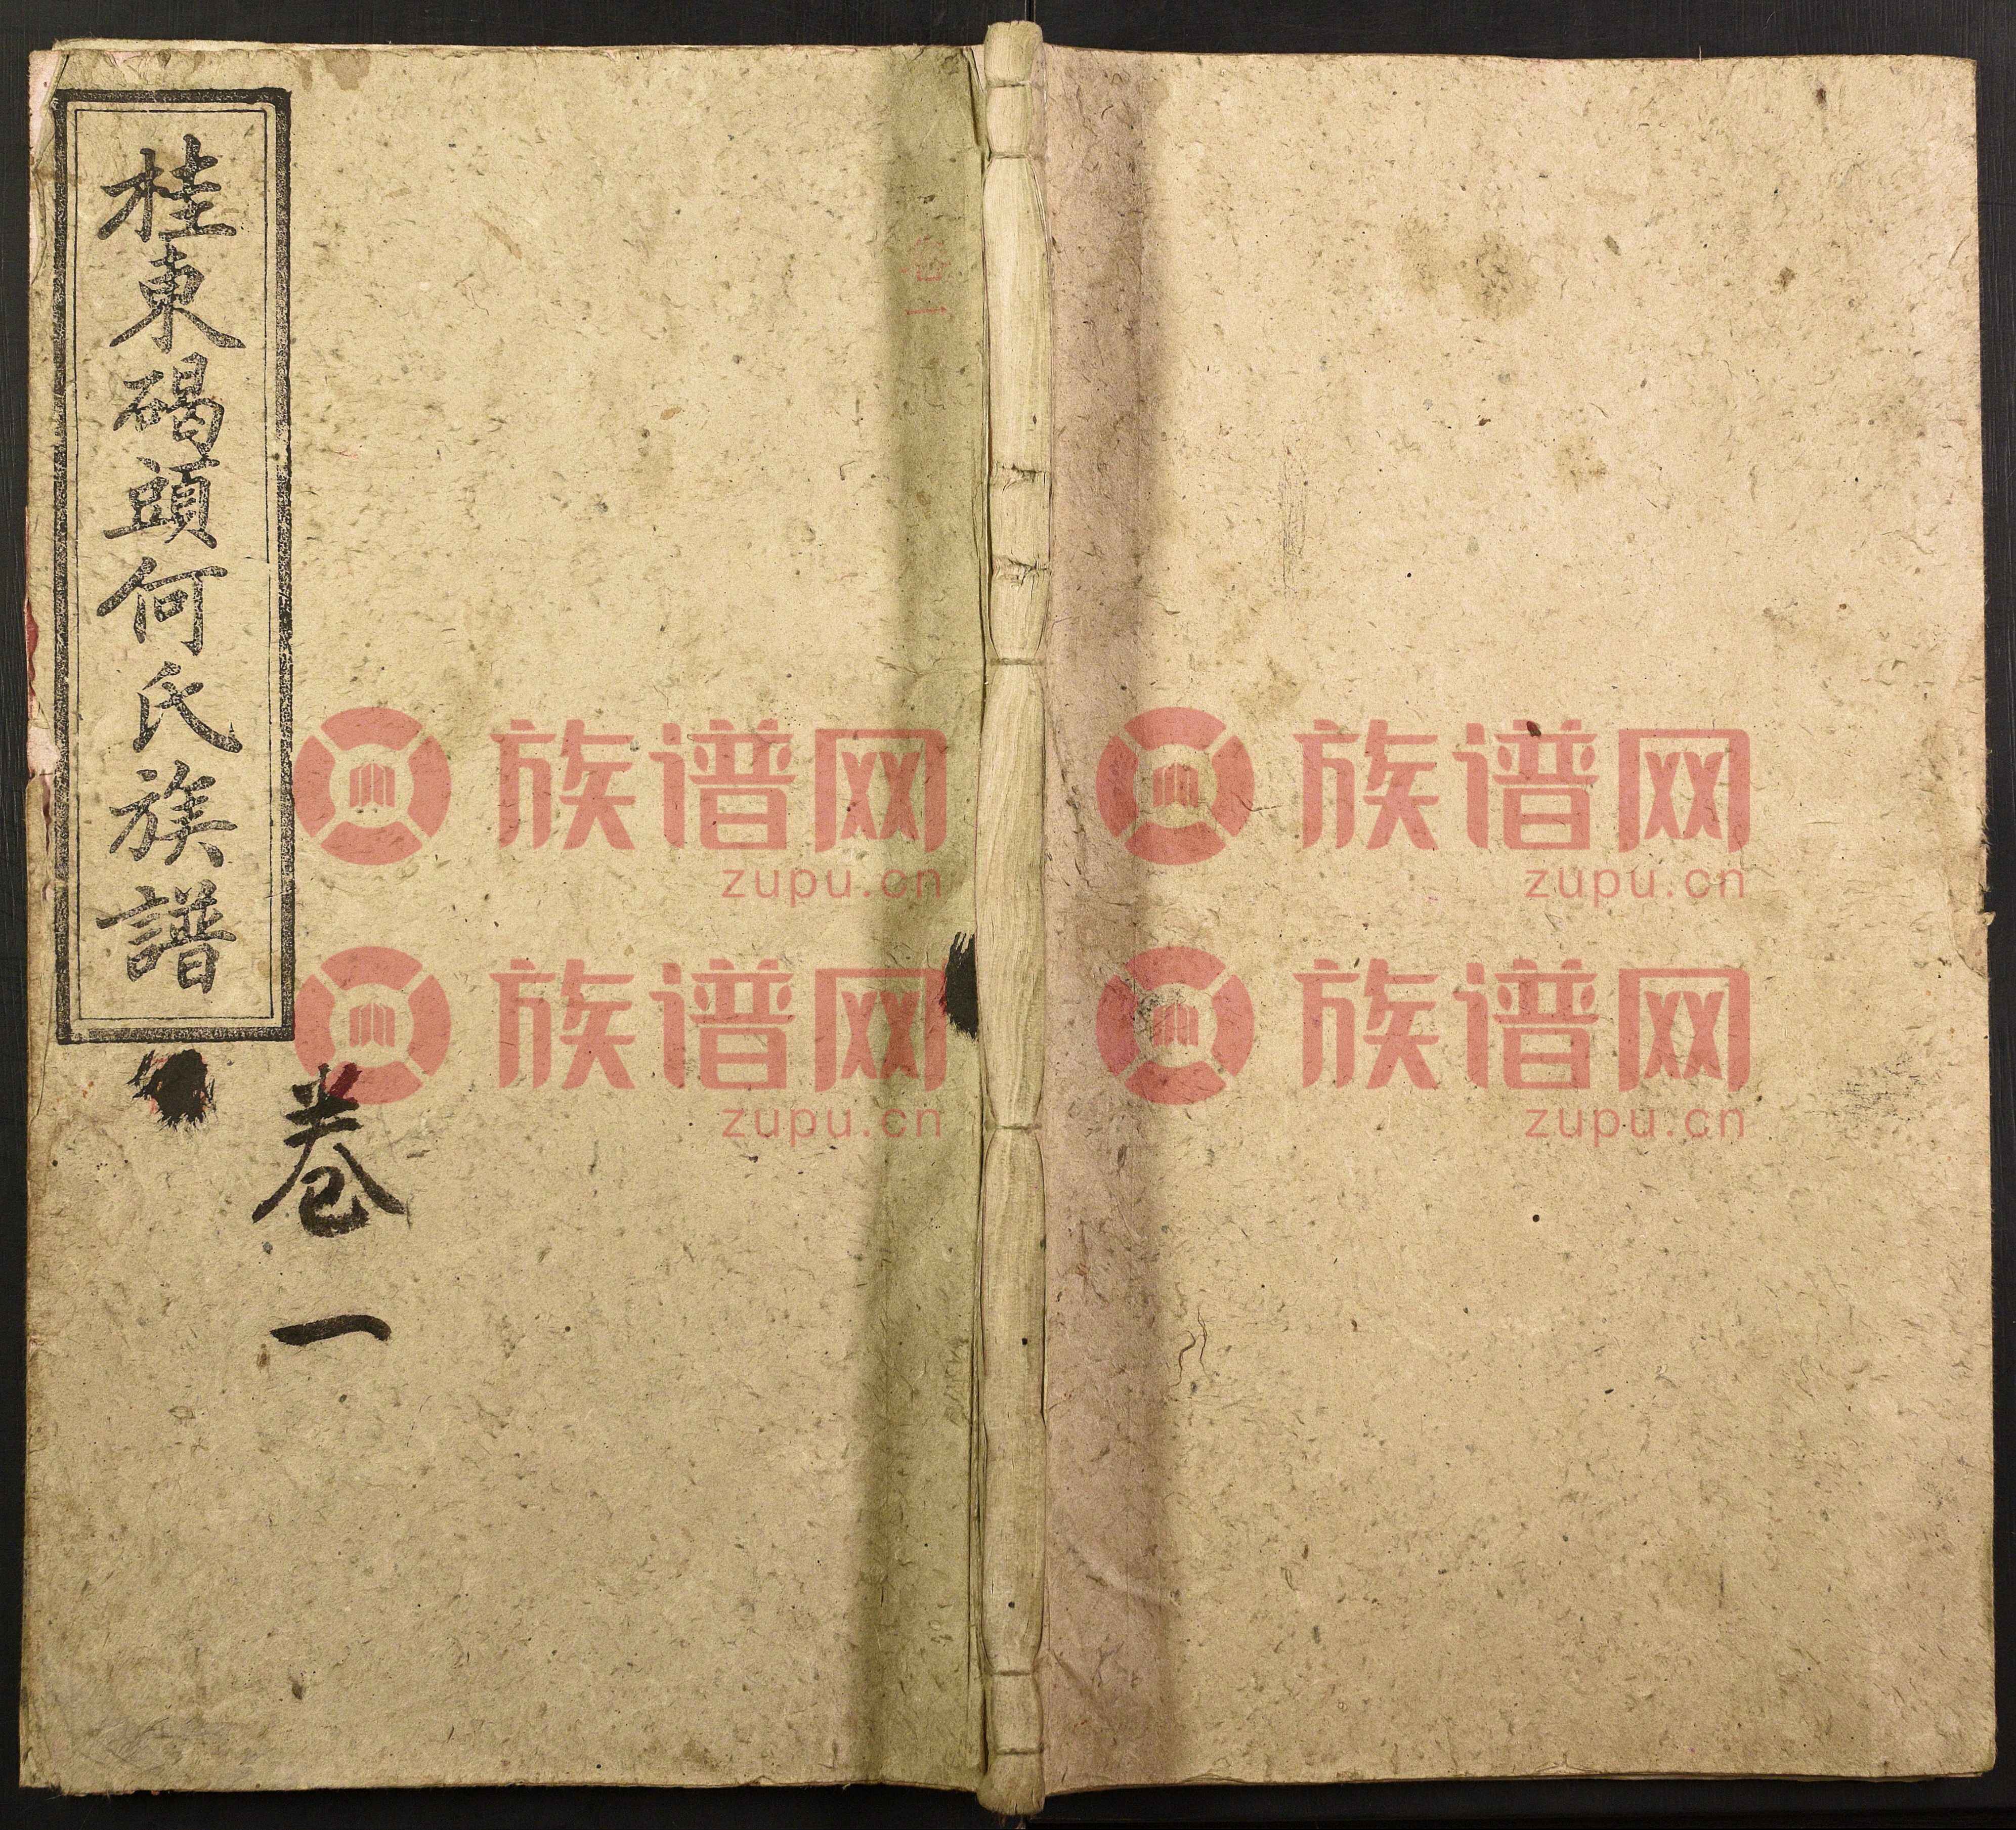 桂東碭頭何氏族譜
卷一
族谱网
zupu.cn
族谱网
zupu.cn
族谱网
zupu.cn
族谱网
zupu.cn